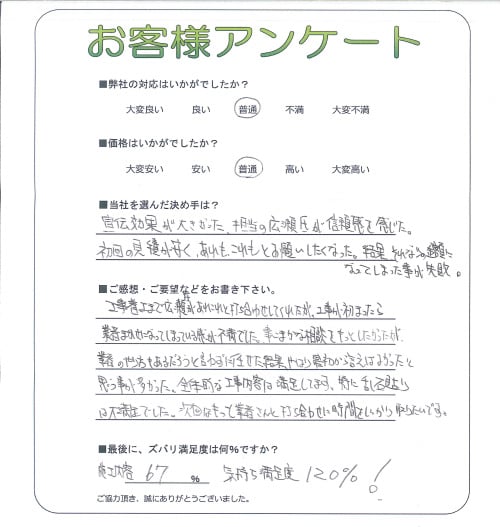 お客様アンケート
■弊社の対応はいかがでしたか？
大変良い 良い 普通 不満 大変不満
■価格はいかがでしたか？
大変安い 安い 普通 高い 大変高い
■当社を選んだ決め手は？
宣伝効果が大きかった、担当の広瀬氏が信頼感を感じた。
初回の見積が甘く、あれもこれもとお願いしたくなった。結果それなりの
なってしまった事が失敗。
■ご感想・ご要望などをお書き下さい。
工事着工まで広瀬があれこれと打ち合わせしてくれたが、工事が初まったら
業者まかせになってしまっている感が不満でした。事こまかな相談をもっとしたかったが
業者のやり方もあるだろうと言わずに任せた結果、やはり最初に言えばよかったと
思う事が多かった。全体的な工事内容は満足してます。特に
は不満でした。次回はもっと業者さんと打ち合わせに時間をしっかり取りたいです。
■最後に、ズバリ満足度は何％ですか？
施工内容 67 % 気持ち満足度 120%！
ご協力頂き、誠にありがとうございました。